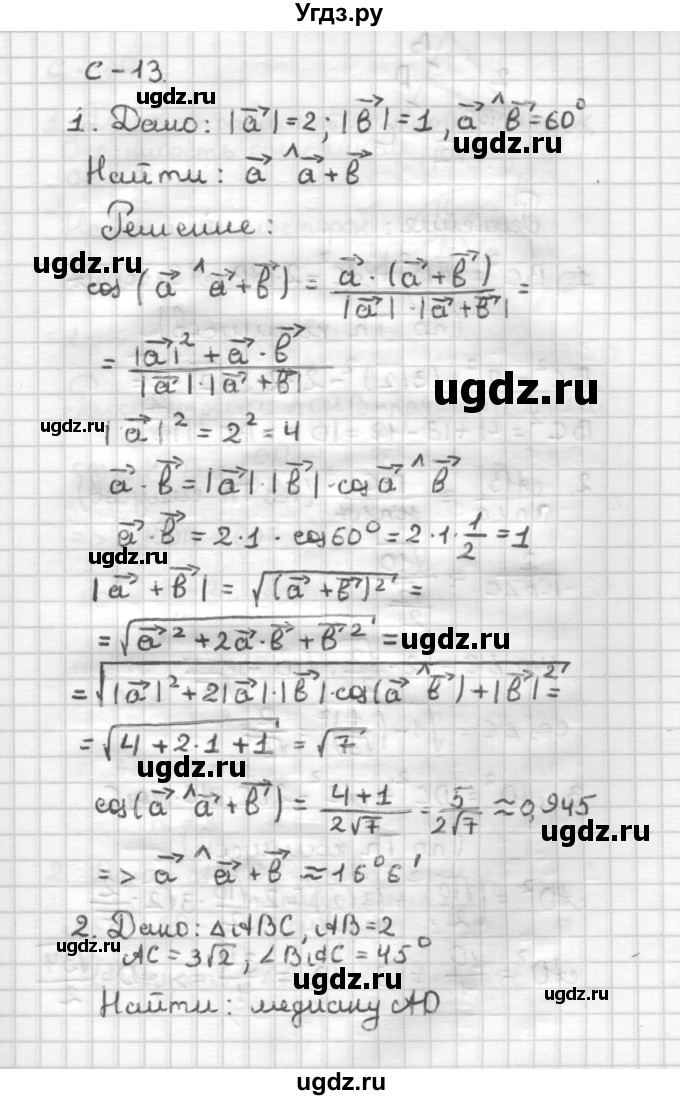 Угдз.ру
С-13.
ugdz.ru
1. Дано: |a⃗|=2; |b⃗|=1, a⃗ ^ b⃗=60°
ugdz.ru
Найти: a⃗ ^ a⃗+b⃗
Решение:
ugdz.ru
cos(a⃗ ^ a⃗+b⃗) = a⃗·(a⃗+b⃗) / |a⃗|·|a⃗+b⃗| =
= |a⃗|²+a⃗·b⃗ / |a⃗|·|a⃗+b⃗|
ugdz.ru
ugdz.ru
|a⃗|²=2²=4
a⃗·b⃗=|a⃗|·|b⃗|·cos a⃗ ^ b⃗
a⃗·b⃗=2·1·cos60°=2·1·1/2=1
ugdz.ru
|a⃗+b⃗|=√(a⃗+b⃗)²=
=√a⃗²+2a⃗·b⃗+b⃗²=
ugdz.ru
=√|a⃗|²+2|a⃗|·|b⃗|·cos(a⃗ ^ b⃗)+|b⃗|²=
=√4+2·1+1=√7
ugdz.ru
cos(a⃗ ^ a⃗+b⃗)=4+1/2√7=5/2√7≈0,945
ugdz.ru
=> a⃗ ^ a⃗+b⃗≈16°6'
2. Дано: △ABC, AB=2
ugdz.ru
AC=3√2, ∠BAC=45°
ugdz.ru
Найти: медиану AD
ugdz.ru
ugdz.ru